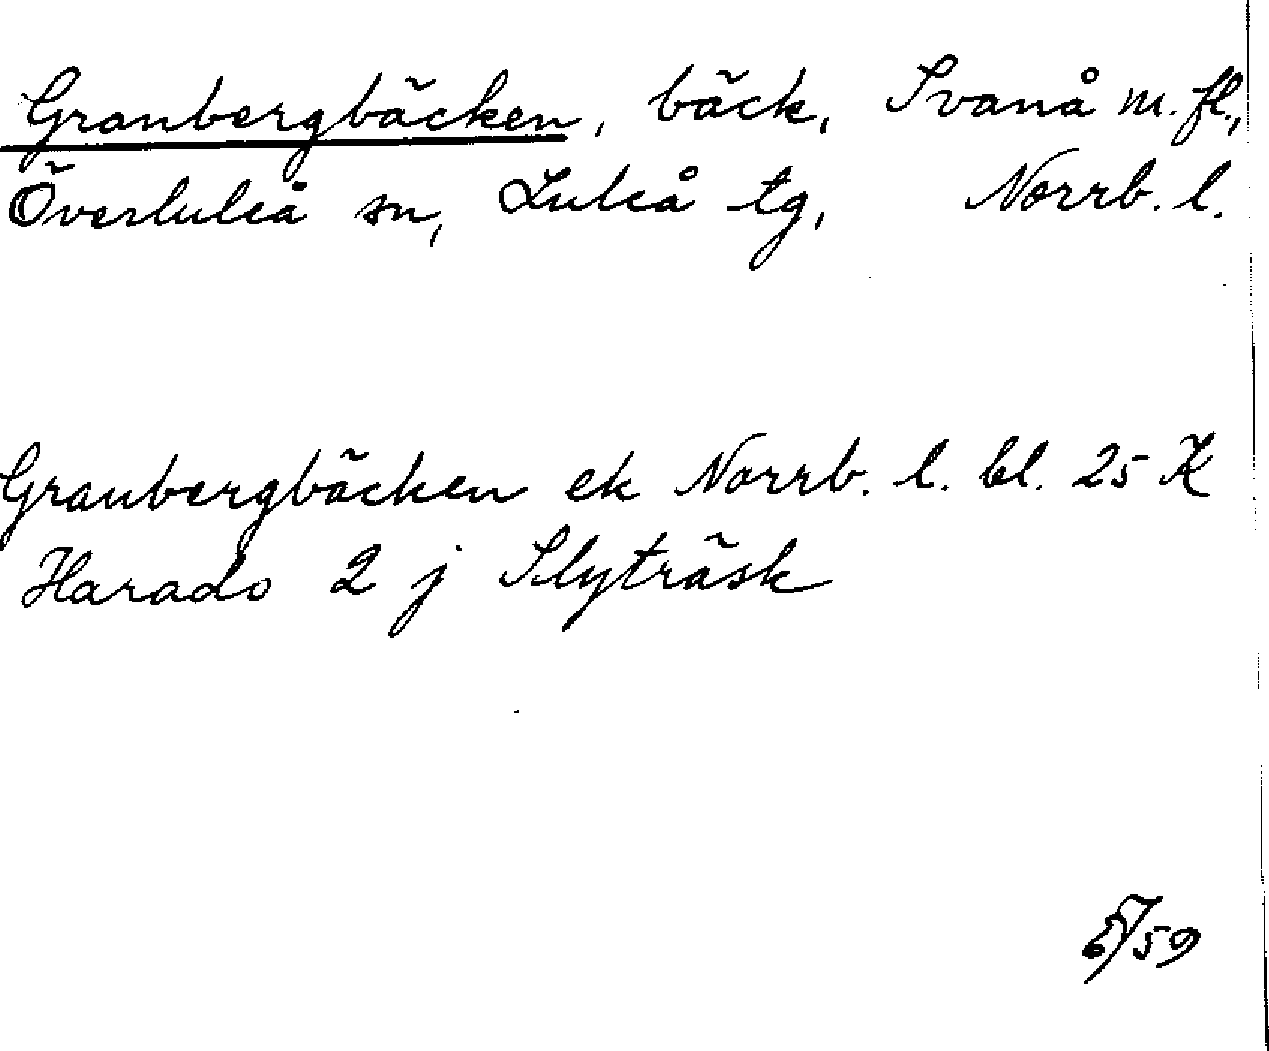 Granbergbäcken, bäck, Svanå m. fl.,
Överluleå sn, Luleå tg, Norrb. l.
Granbergbäcken ek Norrb. l. bl. 25 K
Harads 2 j Slyträsk
/59